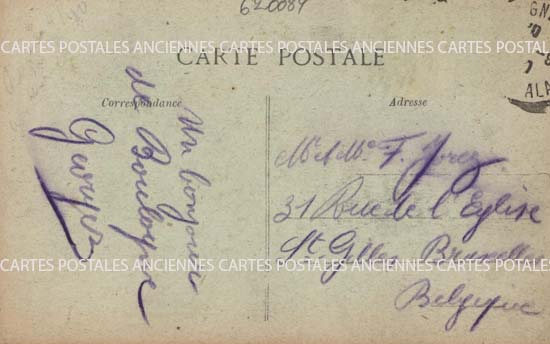 620084
CARTES POSTALES ANCIENNES CARTES POSTALES ANCIENNES CARTES POSTALES
CARTE POSTALE
Correspondance
Adresse
Un bonjour
de Boulogne
Georges
Mr & Me F.
31 Rue de l'Eglise
St Gilles Bruxelles
Belgique
CARTES POSTALES ANCIENNES CARTES POSTALES ANCIENNES CARTES POSTALES